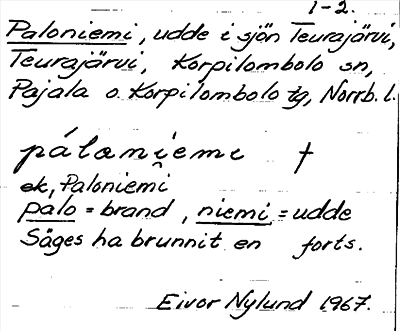 1-2.
Paloniemi, udde i sjön Teurajärvi,
Teurajärvi, Korpilombolo sn,
Pajala o. Korpilombolo tg, Norrb. l.
pálani̯emi †
ek, Paloniemi
palo = brand, niemi = udde
Säges ha brunnit en forts.
Eivor Nylund 1967.